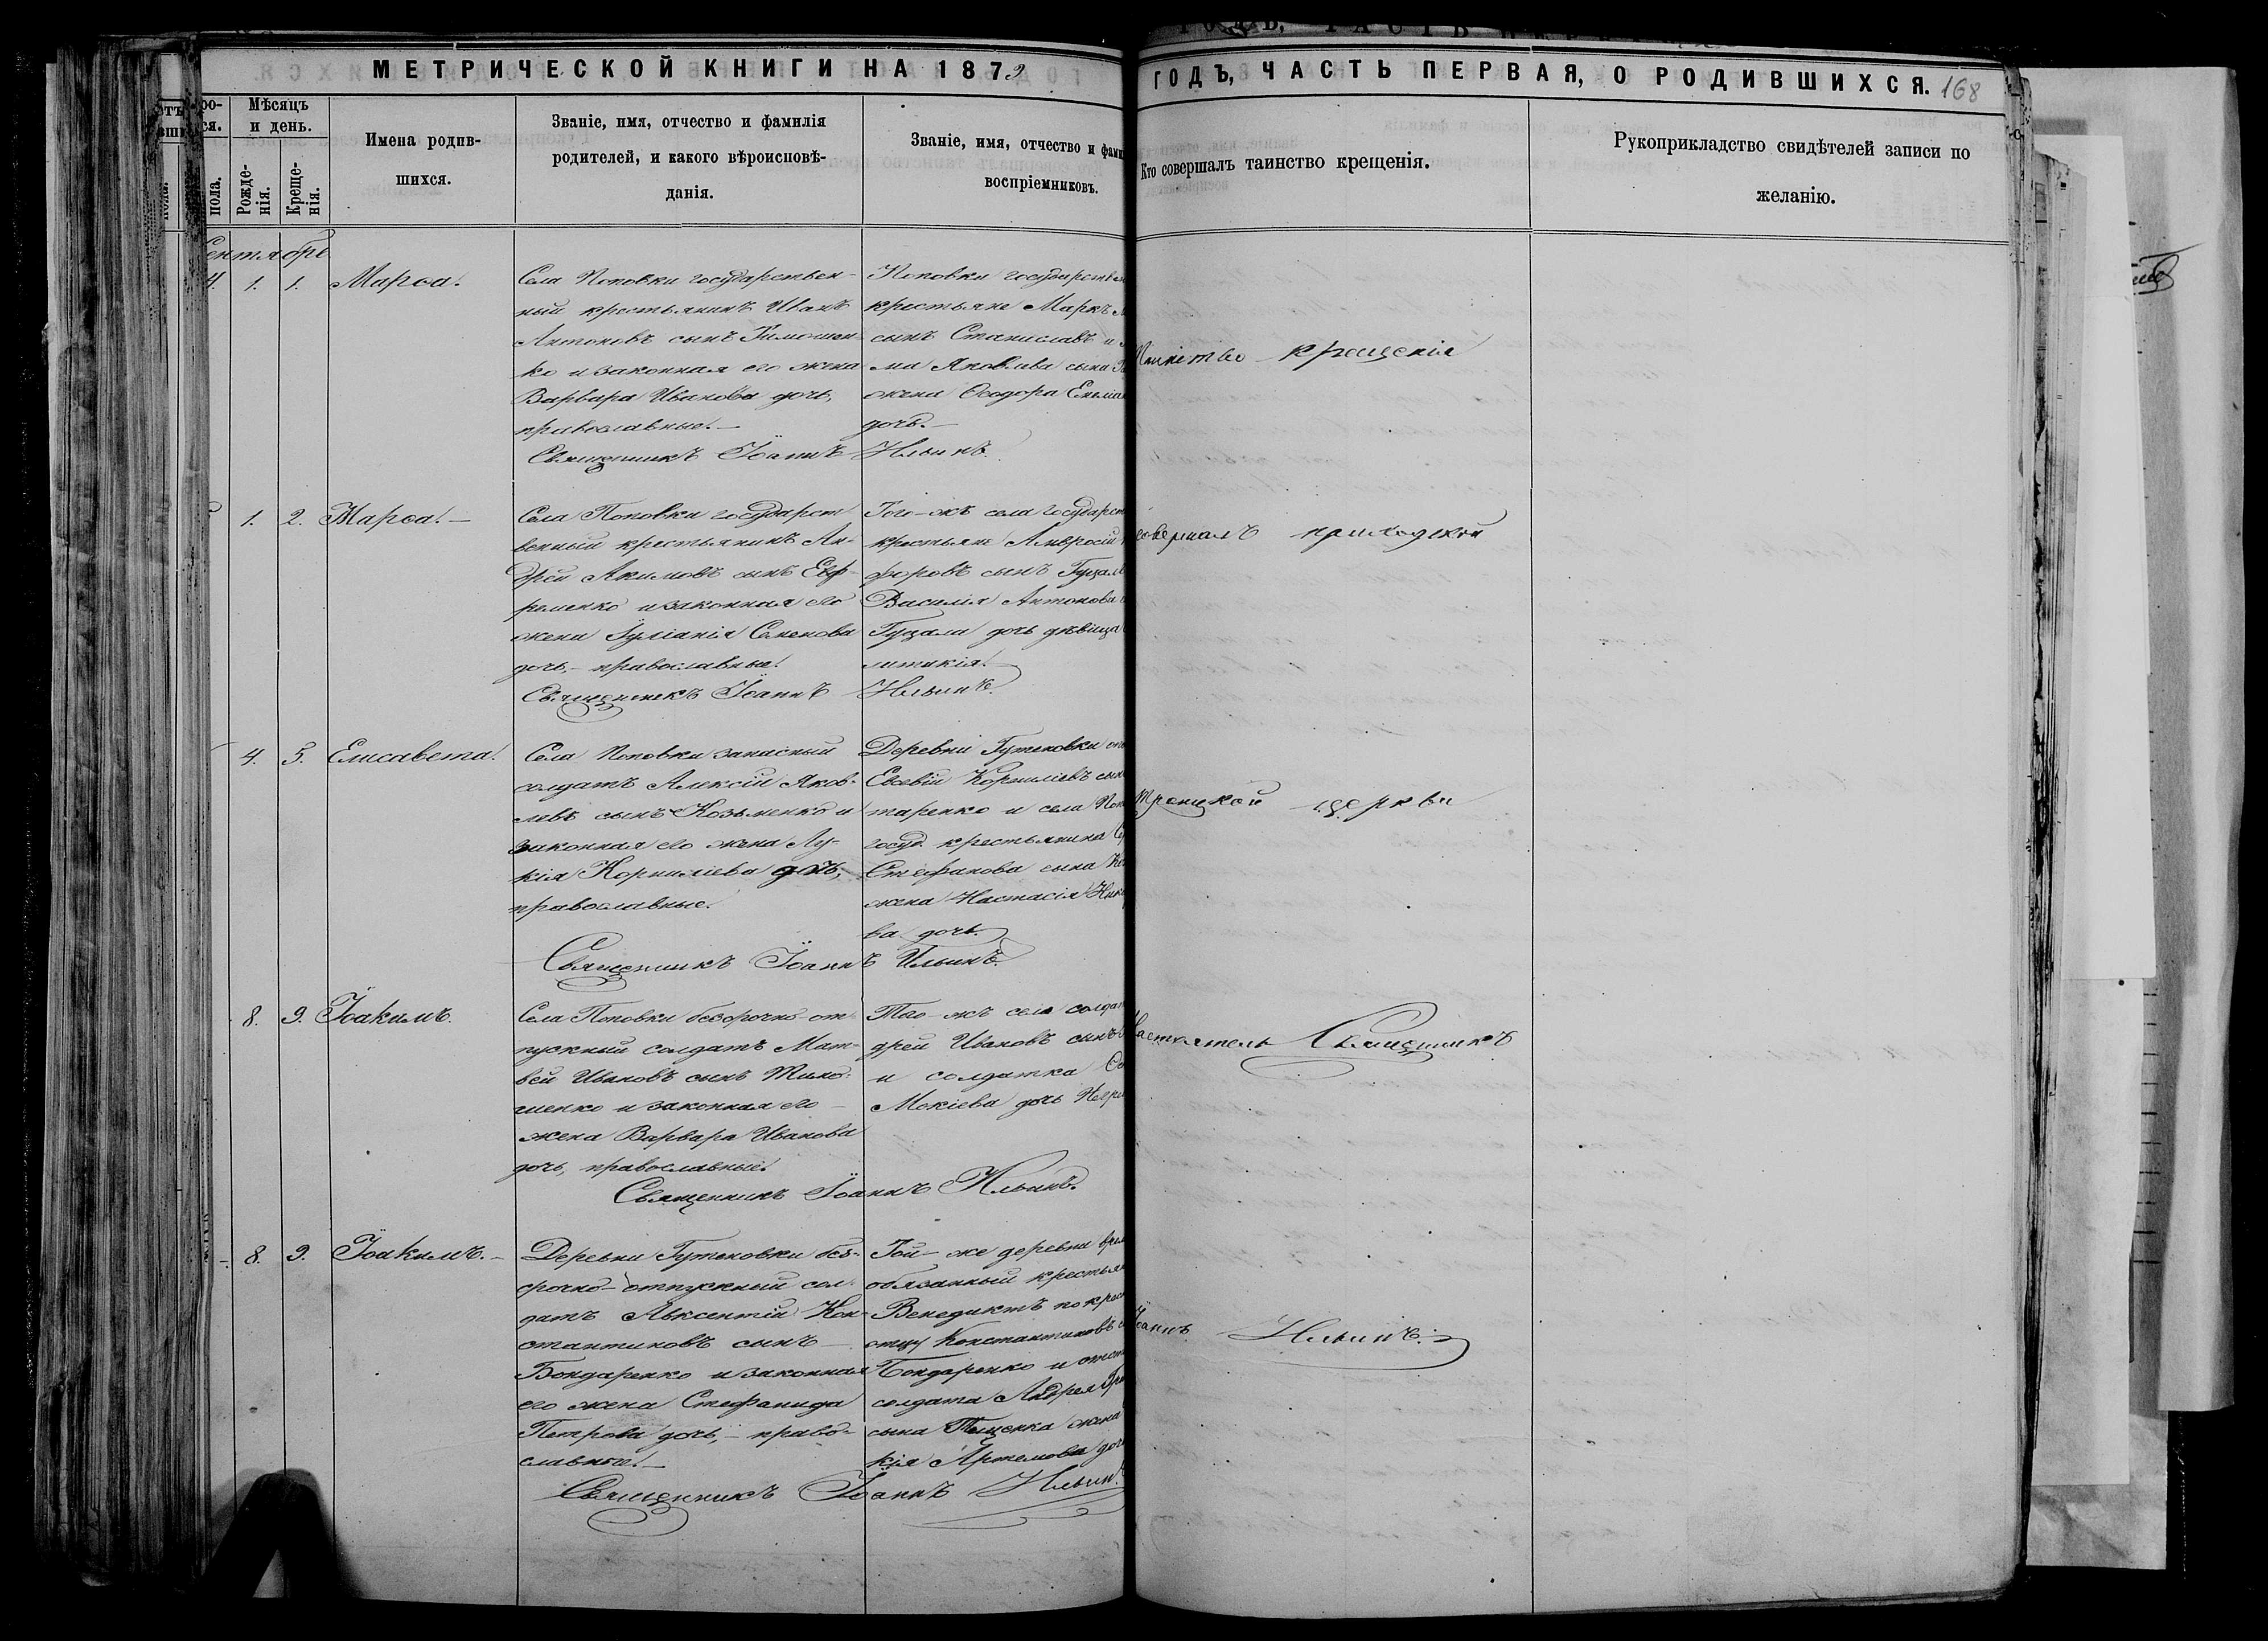 МЕТРИЧЕСКОЙ КНИГИ НА 1873
ГОДЪ, ЧАСТЬ ПЕРВАЯ, О РОДИВШИХСЯ. 168
Мѣсяцъ
и день.
Рожде-
нія.
Креще-
нія.
пола.
Имена родив-
шихся.
Званіе, имя, отчество и фамилія
родителей, и какого вѣроисповѣ-
данія.
Званіе, имя, отчество и
воспріемниковъ.
Кто совершалъ таинство крещенія.
Рукоприкладство свидѣтелей записи по
желанію.
1. 1. Марѳа.
Села Поповки государствен-
ный крестьянинъ Иванъ
Антоновъ сынъ Тимошен-
ко и законная его жена
Варвара Иванова дочь,
православные.
Поповки
крестьяне Маркъ
сынъ Станиславъ и
ма Яковлева сына
жена Ѳеодора
дочь.
Священникъ Іоаннъ Ильинъ.
1. 2. Марѳа.
Села Поповки государст
венный крестьянинъ Ан-
дрей Акимовъ сынъ Евф-
ременко и законная его
жена Іуліанія Семенова
дочь, православные.
Того-жъ села
крестьяне Амвросій
форовъ сынъ
Василія Антонова
Гуцала дочь дѣвица
Священникъ Іоаннъ Ильинъ.
4. 5. Елисавета.
Села Поповки запасный
солдатъ Алексій Яков-
левъ сынъ Козьменко и
законная его жена Лу-
кія Корниліева дочь,
православные.
Деревни Гутеновки
Евсевій Корниліевъ
таренко и села
госуд. крестьянина
Стефанова сына
жена Настасія
ва дочь.
Священникъ Іоаннъ Ильинъ.
8. 9. Іоакимъ.
Села Поповки безсрочно-от
пускный солдатъ Мат-
вей Ивановъ сынъ Тимо-
шенко и законная его
жена Варвара Иванова
дочь, православные.
Того-жъ села
дрей Ивановъ сынъ
и солдатка
Мокіева дочь
Священникъ Іоаннъ Ильинъ.
8. 9. Іоакимъ.
Деревни Гутеновки без-
срочно-отпускный сол-
датъ Авксентій Кон-
стантиновъ сынъ
Бондаренко и законная
его жена Стефанида
Петрова дочь, право-
славные.
Той-же деревни
обязанный
Венедиктъ по
отцу Константиновъ
Бондаренко и
солдата Андрея
сына жена
кія Артемова
Священникъ Іоаннъ Ильинъ
Таинство крещенія
совершалъ приходской
Троицкой церкви
настоятель Священникъ
Іоаннъ Ильинъ.